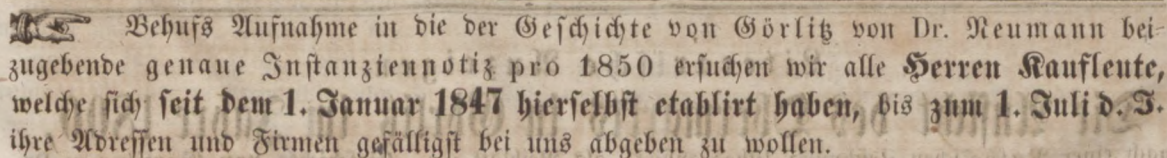 ☞ Behufs Aufnahme in die der Geſchichte von Görlitz von Dr. Neumann bei-
zugebende genaue Inſtanziennotiz pro 1850 erſuchen wir alle Herren Kaufleute,
welche ſich ſeit dem 1. Januar 1847 hierſelbſt etablirt haben, bis zum 1. Juli d. J.
ihre Adreſſen und Firmen gefälligſt bei uns abgeben zu wollen.